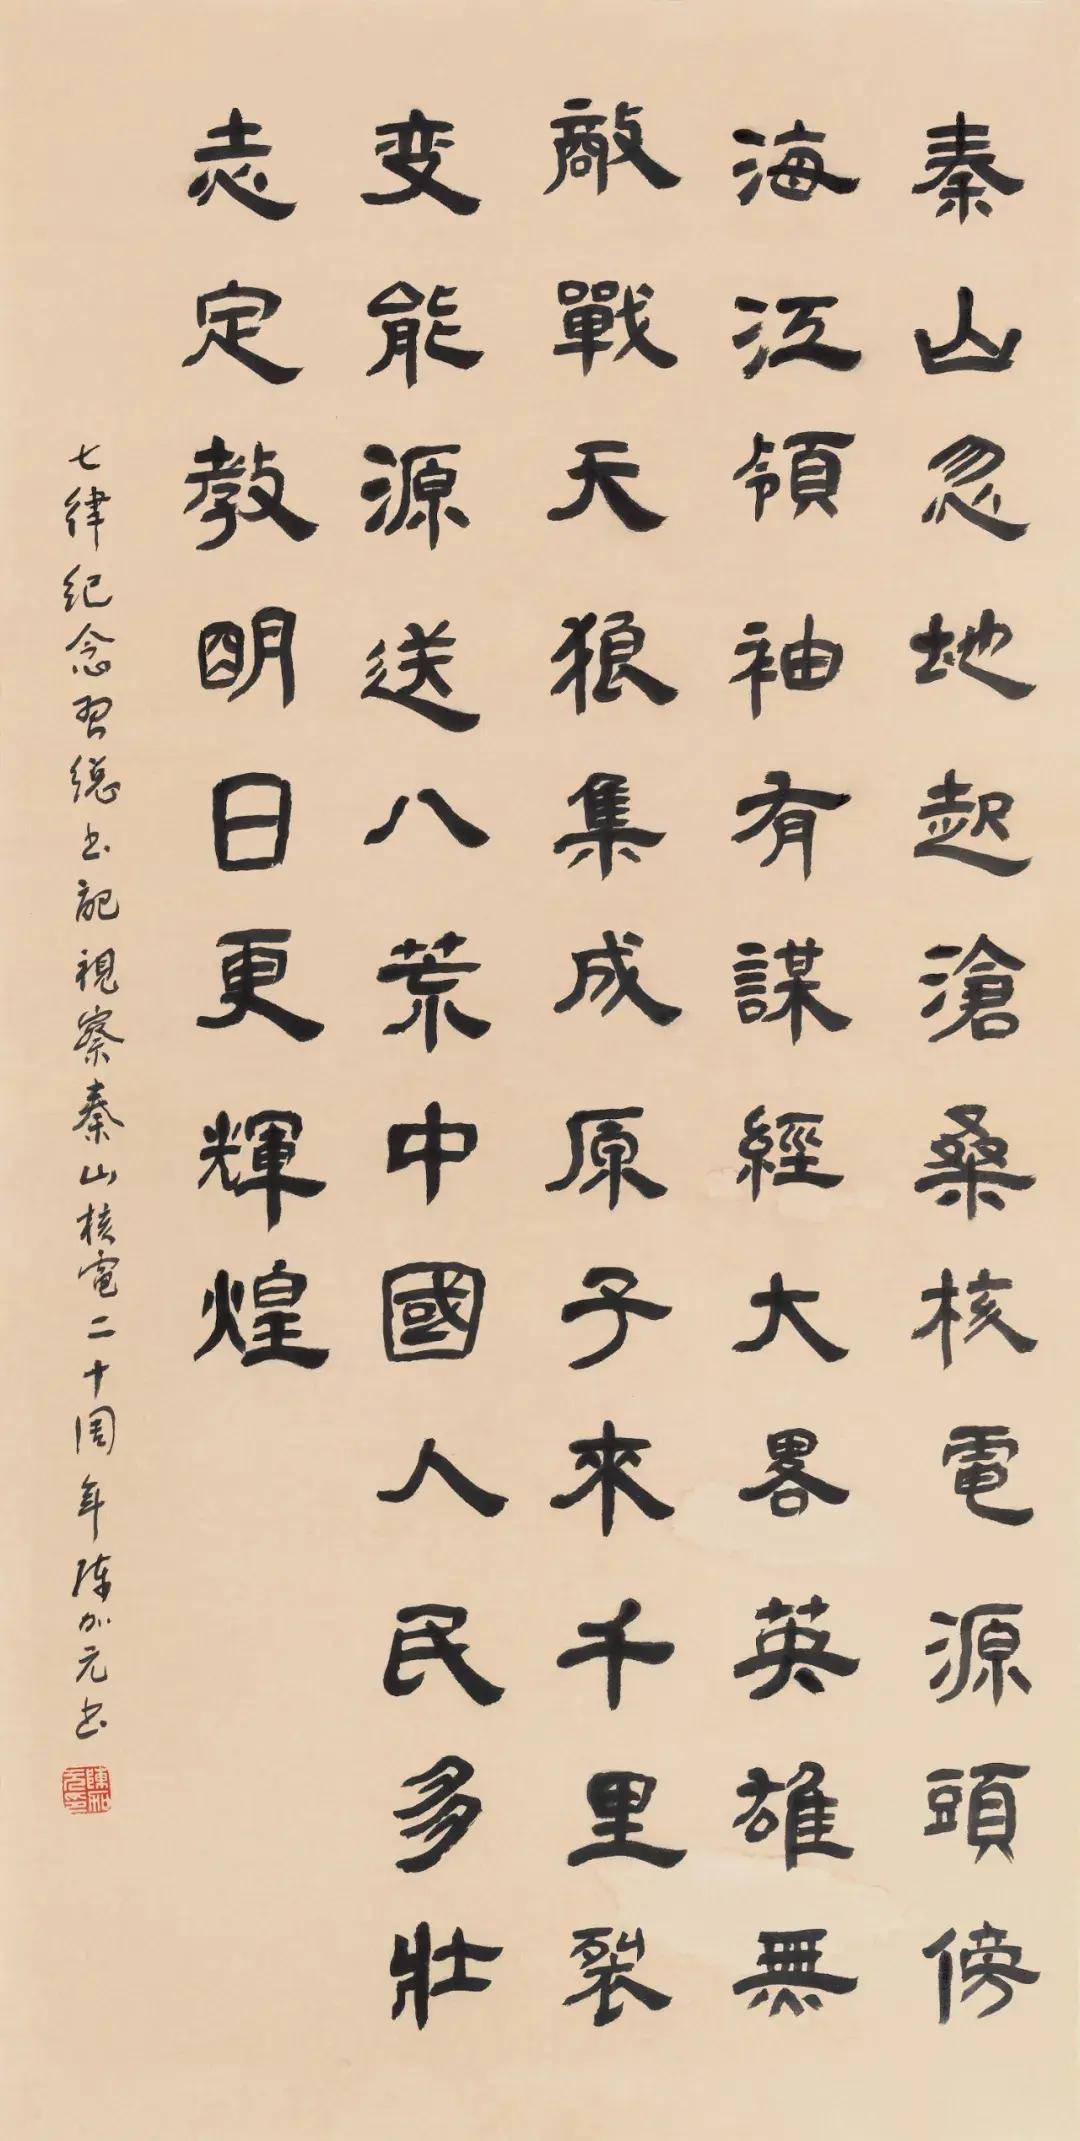 秦山忽地起滄桑核電源頭傍
海江領袖有謀經大畧英雄無
敵戰天狼集成原子來千里裂
变能源送八荒中國人民多壮
志定教明日更輝煌
七律纪念習總书記視察秦山核電二十周年陳加元书
陳加元印